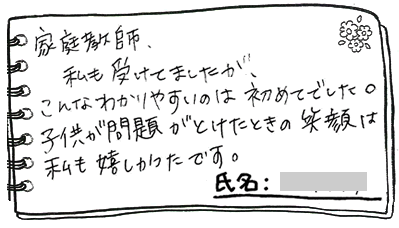 家庭教師、
私も受けてましたが、
こんなわかりやすいのは初めてでした。
子供が問題がとけたときの笑顔は
私も嬉しかったです。
氏名：